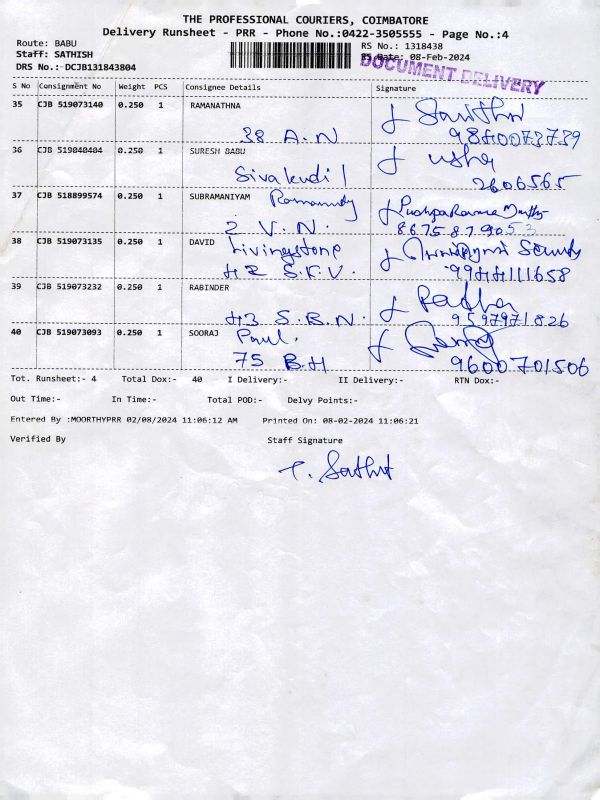 THE PROFESSIONAL COURIERS, COIMBATORE
Delivery Runsheet - PRR - Phone No.:0422-3505555 - Page No.:4
Route: BABU
RS No.: 1318438
Staff: SATHISH
RS Date: 08-Feb-2024
DRS No.:-DCJB131843804
DOCUMENT DELIVERY
S No Consignment No Weight PCS Consignee Details Signature
35 CJB 519073140 0.250 1 RAMANATHNA
38 A.N 9840073739
36 CJB 519040404 0.250 1 SURESH BABU usha
Sivakudil 2606565
37 CJB 518899574 0.250 1 SUBRAMANIYAM
2 V.N. 8675879053
38 CJB 519073135 0.250 1 DAVID Livingstone Security
42 S.F.V. 9944111658
39 CJB 519073232 0.250 1 RABINDER Radha
43 S.B.N. 9597971826
40 CJB 519073093 0.250 1 SOORAJ Paul.
75 B.H 9600701506
Tot. Runsheet:- 4 Total Dox:- 40 I Delivery:- II Delivery:- RTN Dox:-
Out Time:- In Time:- Total POD:- Delvy Points:-
Entered By :MOORTHYPRR 02/08/2024 11:06:12 AM Printed On: 08-02-2024 11:06:21
Verified By Staff Signature